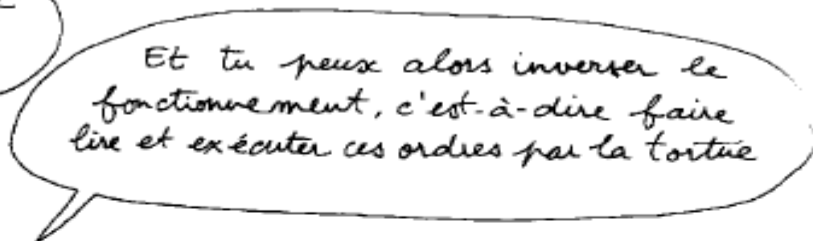 Et tu peux alors inverser le
fonctionnement, c'est-à-dire faire
lire et exécuter ces ordres par la tortue